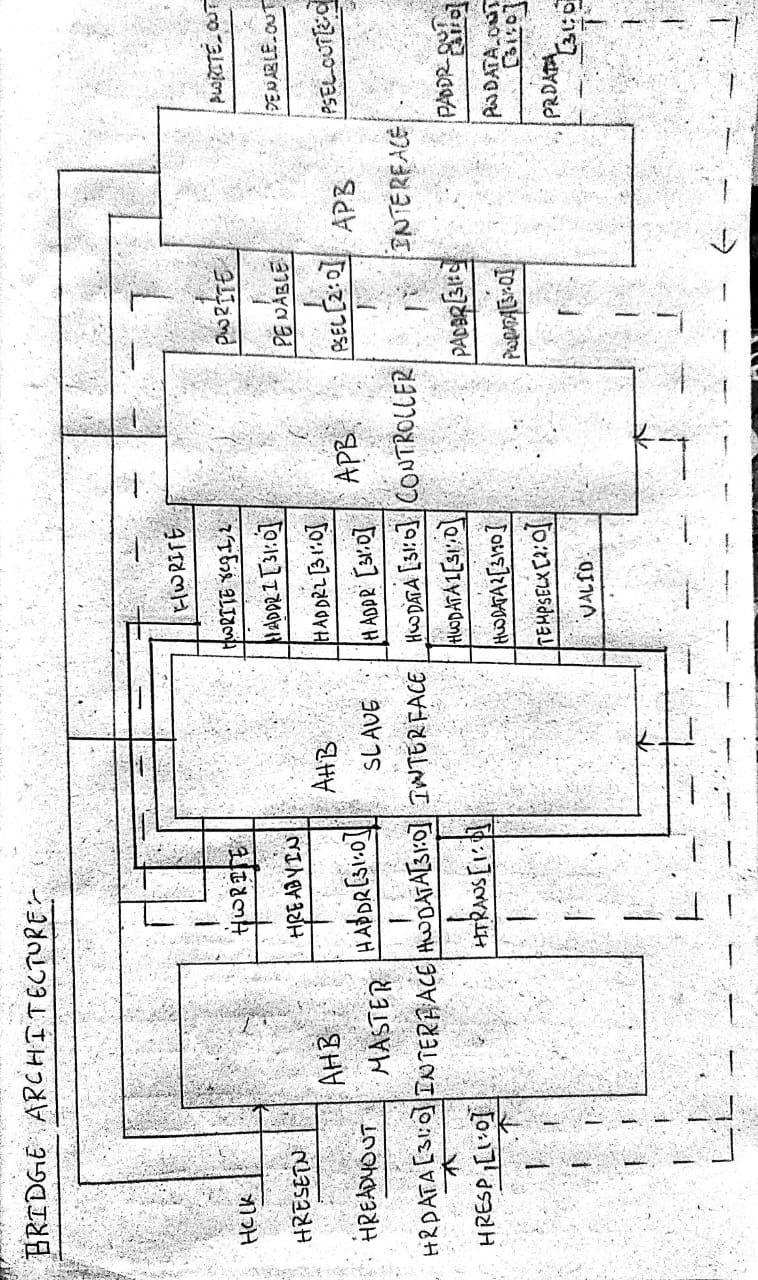 BRIDGE ARCHITECTURE:-
HCLK
HRESETN
HREADYOUT
HRDATA[31:0]
HRESP[1:0]
AHB
MASTER
INTERFACE
HWRITE
HREADYIN
HADDR[31:0]
HWDATA[31:0]
HTRANS[1:0]
AHB
SLAVE
INTERFACE
HWRITE
HWRITEreg1,2
HADDR1[31:0]
HADDR2[31:0]
HADDR[31:0]
HWDATA[31:0]
HWDATA1[31:0]
HWDATA2[31:0]
TEMPSELX[2:0]
VALID
APB
CONTROLLER
PWRITE
PENABLE
PSEL[2:0]
PADDR[31:0]
PWDATA[31:0]
APB
INTERFACE
PWRITE_OUT
PENABLE_OUT
PSEL_OUT[2:0]
PADDR_OUT
[31:0]
PWDATA_OUT
[31:0]
PRDATA
[31:0]